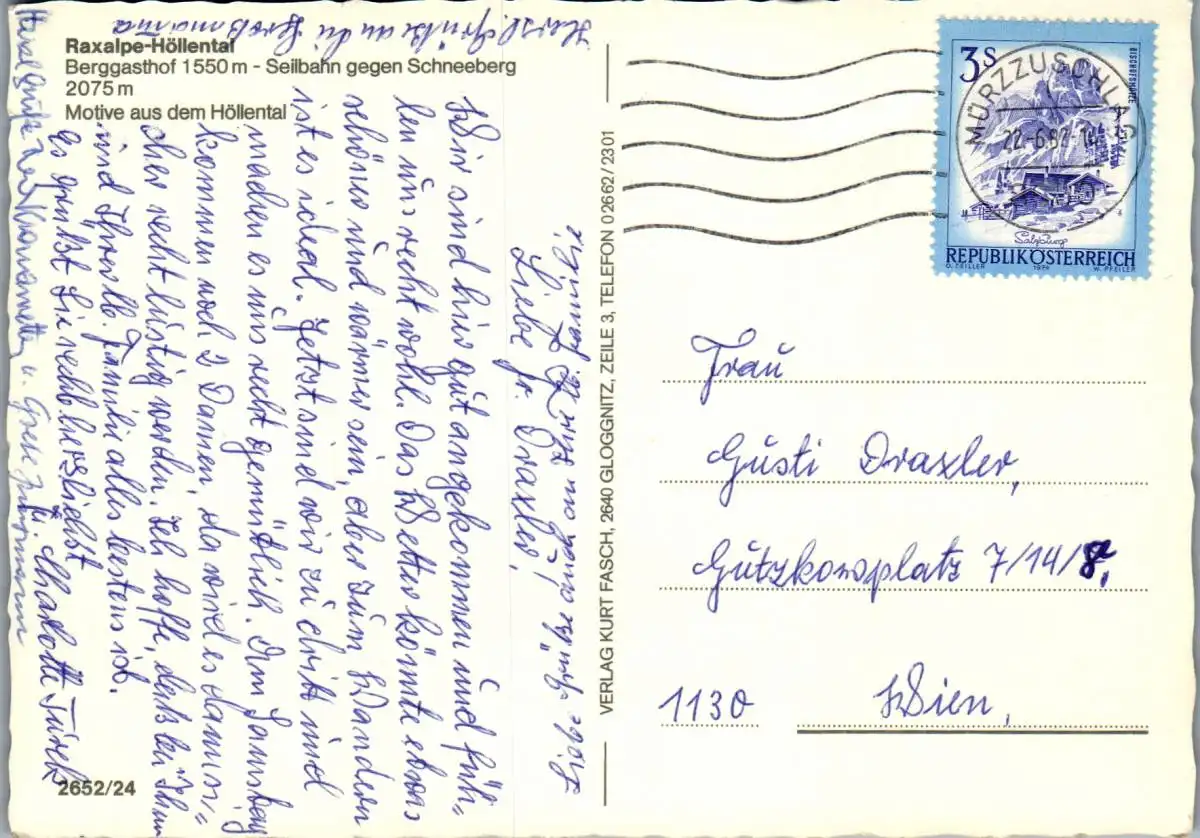 Herzl. Grüße an die Großmama
Raxalpe-Höllental
Berggasthof 1550 m - Seilbahn gegen Schneeberg
2075 m
Motive aus dem Höllental
Liebe Fr. Draxler,
Wir sind hier gut angekommen und füh-
len uns recht wohl. Das Wetter könnte etwas
schöner und wärmer sein, aber zum Wandern
ist es ideal. Jetzt sind wir zu dritt und
machen es uns recht gemütlich. Am Samstag
kommen noch 2 Damen, da wird es dann si-
cher recht lustig werden. Ich hoffe, daß bei Ihnen
und Ihrer lb. Familie alles bestens ist.
Es grüßt Sie recht herzlichst
Charlotte Türek
Liebe Grüße auch an Herzi u. Hanni!
Herzl Grüße
u. Grete
2652/24
VERLAG KURT FASCH, 2640 GLOGGNITZ, ZEILE 3, TELEFON 02662/2301
3 S
BISCHOFSMÜTZE
MÜRZZUSCHLAG
22.-6.82-14
Salzburg
REPUBLIK ÖSTERREICH
O. ZEILLER 1974 W. PFEILER
Frau
Gusti Draxler,
Gutzkowplatz 7/14/8,
1130 Wien,